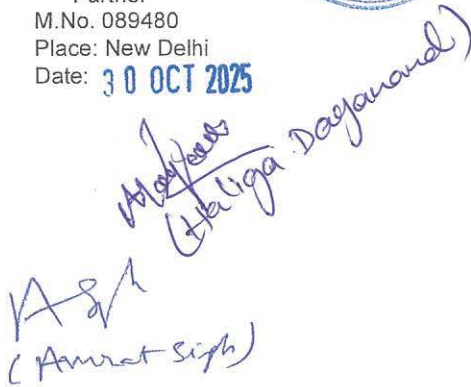 Partner
M.No. 089480
Place: New Delhi
Date: 30 OCT 2025
(Haliga Dayanand)
(Amrat Singh)